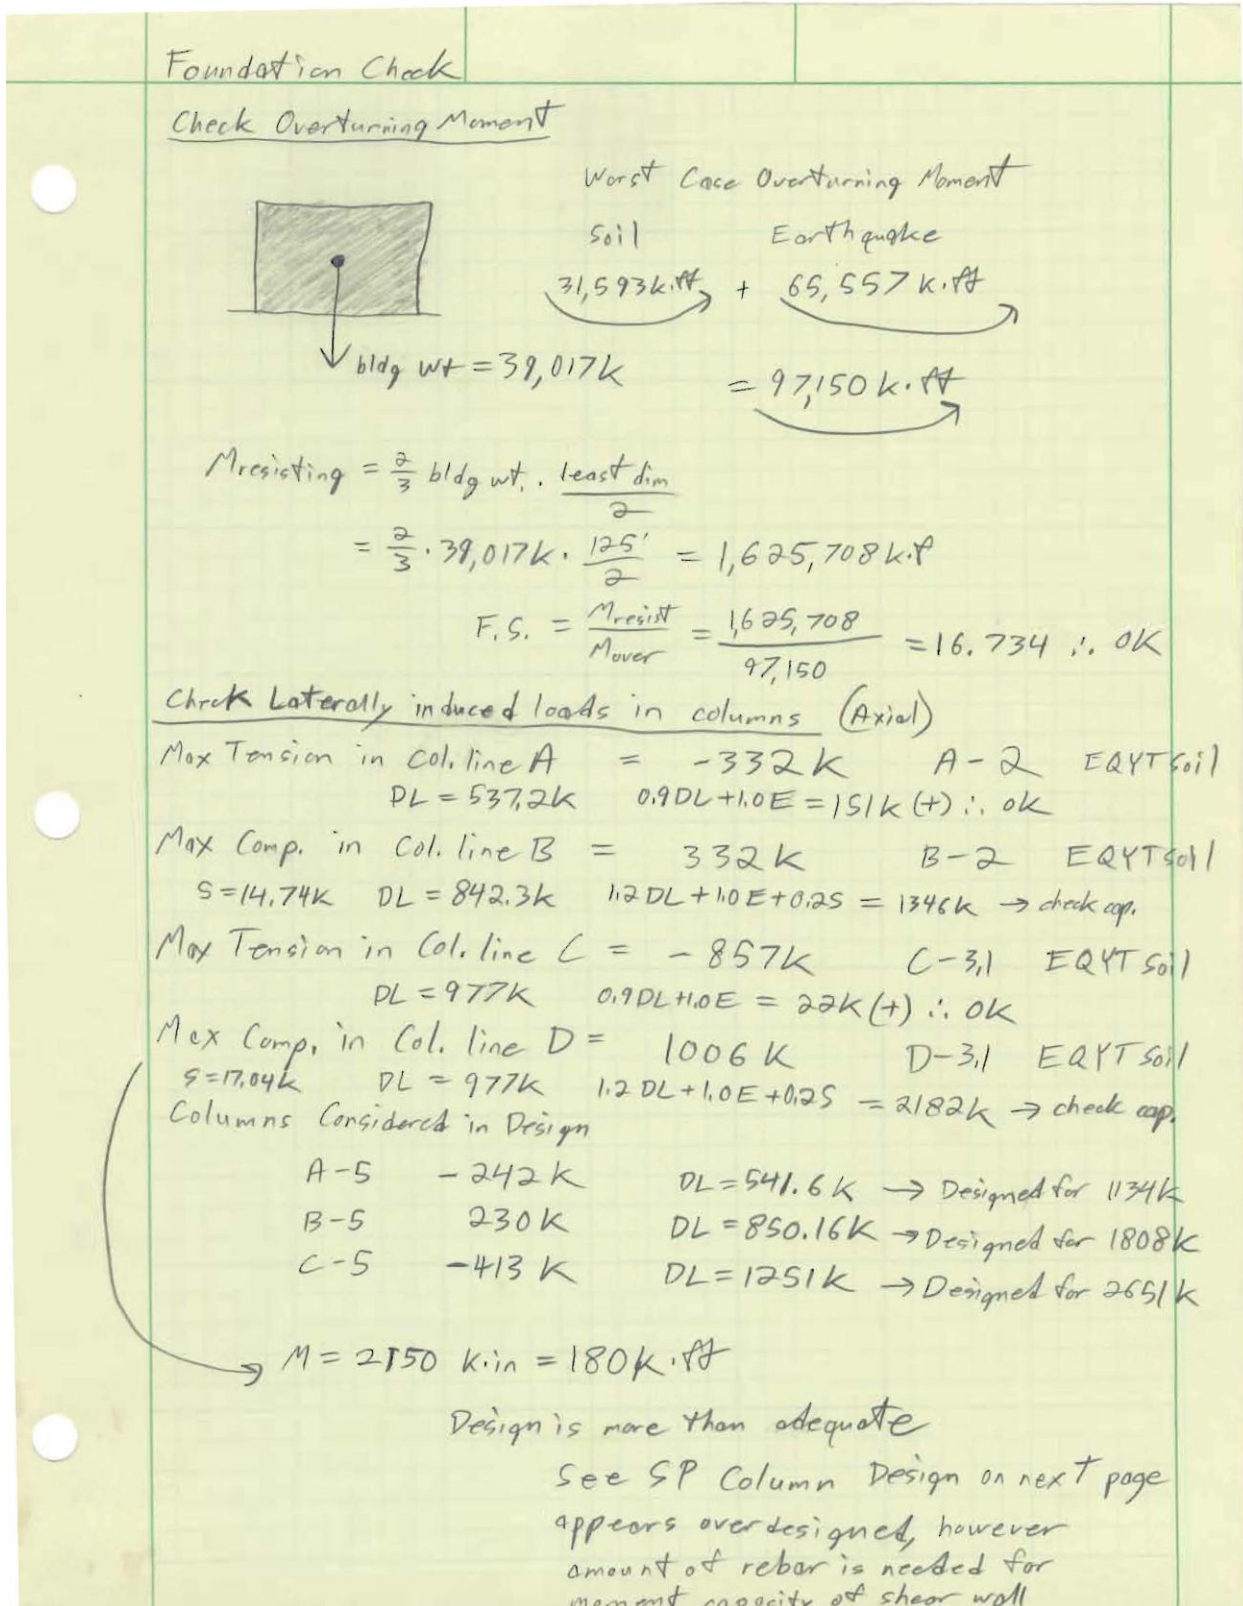 Foundation Check
Check Overturning Moment
Worst Case Overturning Moment
Soil Earthquake
31,593k·ft + 65,557 k·ft
bldg wt = 39,017k
= 97,150 k·ft
Mresisting = 2/3 bldg wt. · least dim/2
= 2/3 · 39,017k · 125'/2 = 1,625,708 k·f
F.S. = Mresist/Mover = 1,625,708/97,150 = 16.734 ∴ OK
Check Laterally induced loads in columns (Axial)
Max Tension in Col. line A = -332k A-2 EQYTSoil
DL = 537.2k 0.9DL+1.0E = 151k (+) ∴ ok
Max Comp. in Col. line B = 332k B-2 EQYTSoil
S=14.74k DL = 842.3k 1.2DL+1.0E+0.2S = 1346k → check cap.
Max Tension in Col. line C = -857k C-3,1 EQYTSoil
DL = 977k 0.9DL+1.0E = 22k (+) ∴ OK
Max Comp. in Col. line D = 1006k D-3,1 EQYTSoil
S=17.04k DL = 977k 1.2DL+1.0E+0.2S = 2182k → check cap.
Columns Considered in Design
A-5 -242k DL=541.6k → Designed for 1134k
B-5 230k DL=850.16k → Designed for 1808k
C-5 -413k DL=1251k → Designed for 2651k
M = 2150 k·in = 180k·ft
Design is more than adequate
See SP Column Design on next page
appears overdesigned, however
amount of rebar is needed for
moment capacity of shear wall